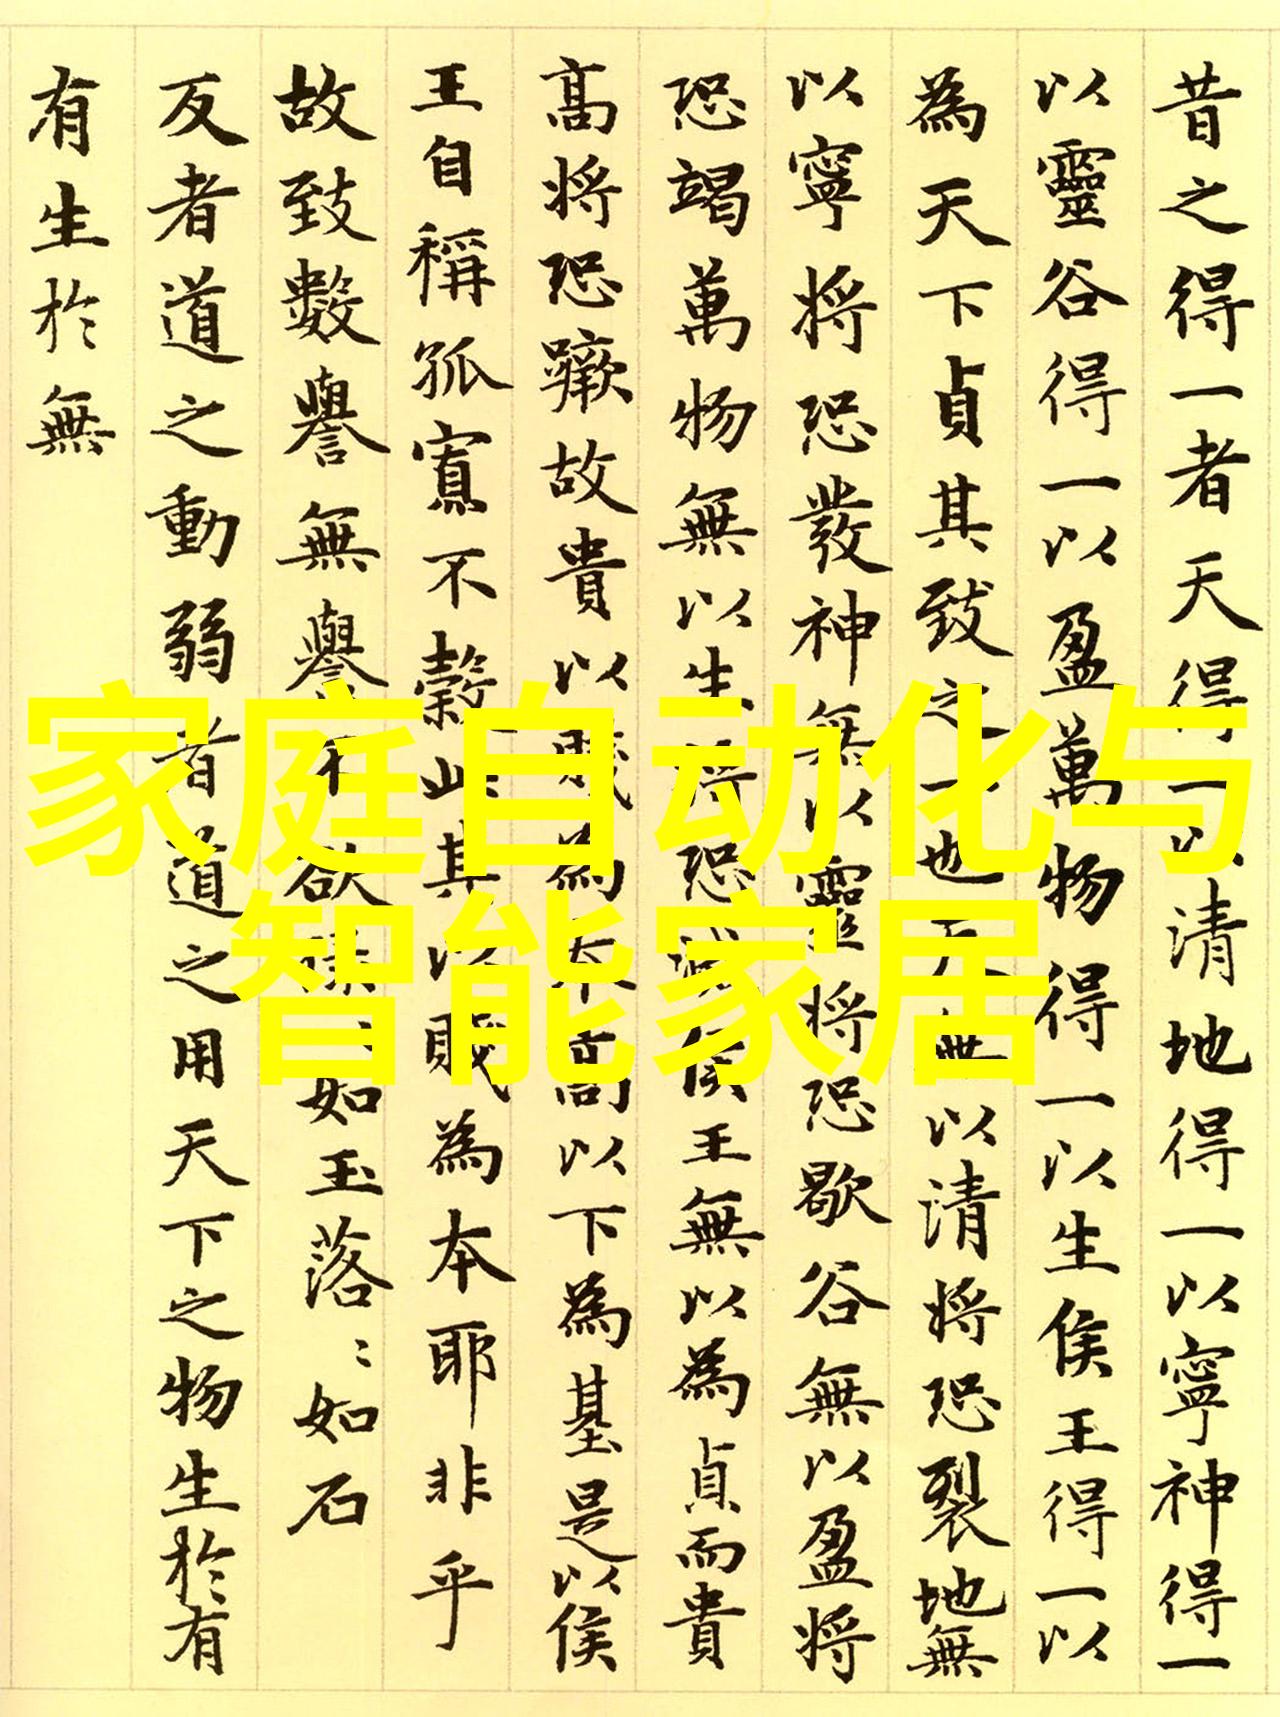 昔之得一者天得一以清地得一以寧神得一
以靈谷得一以盈萬物得一以生侯王得一以
為天下貞其致之一也天無以清將恐裂地無
以寧將恐發神無以靈將恐歇谷無以盈將
恐竭萬物無以生將恐滅侯王無以為貞而貴
高將恐蹶故貴以賤為本高以下為基是以侯
王自稱孤寡不穀此其以賤為本耶非乎
故致數譽無譽不欲琭〻如玉落〻如石
反者道之動弱者道之用天下之物生於有
有生於無
家庭自动化与
智能家居